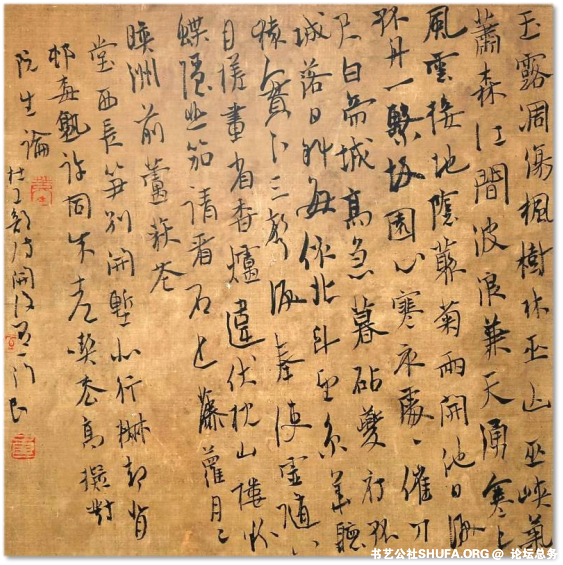 玉露凋傷楓樹林巫山巫峽氣
蕭森江間波浪兼天湧塞上
風雲接地陰叢菊兩開他日淚
孤舟一繫故園心寒衣處處催刀
尺白帝城高急暮砧夔府孤
城落日斜每依北斗望京華聽
猿實下三聲淚奉使虛隨八
月槎畫省香爐違伏枕山樓粉
堞隱悲笳請看石上藤蘿月已
映洲前蘆荻花
堂西長笋別開塹北行椒却背
村梅熟許同朱老喫松高擬對
阮生論
杜工部詩開後
书艺公社SHUFA.ORG @ 论坛总务